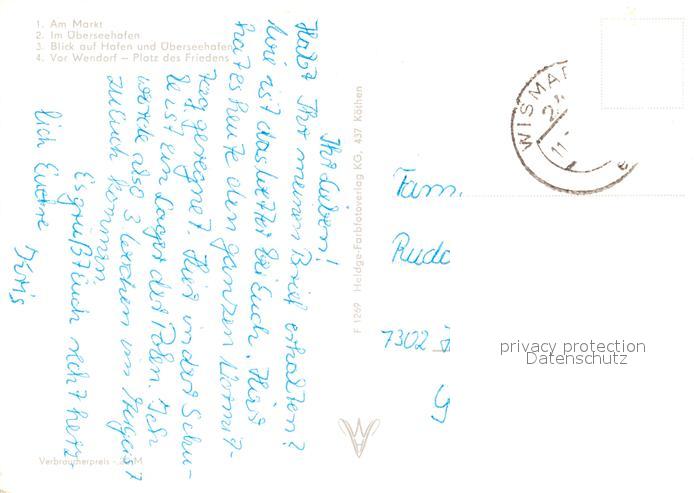 1. Am Markt
2. Im Überseehafen
3. Blick auf Hafen und Überseehafen
4. Vor Wendorf – Platz des Friedens
Ihr Lieben!
Habt Ihr meinen Brief erhalten?
Wie ist das Wetter bei Euch. Hier
hat es heute den ganzen Vormit-
tag geregnet. Hier in der Schu-
le ist ein Lager der Polen. Ich
werde also 3 Wochen im
zu Euch kommen
Es grüßt Euch recht herz-
lich Eure
Verbraucherpreis -,20 M
F 1269 Heldge-Farbfotoverlag KG, 437 Köthen
WISMAR
Fam.
Rudo
7302
privacy protection
Datenschutz